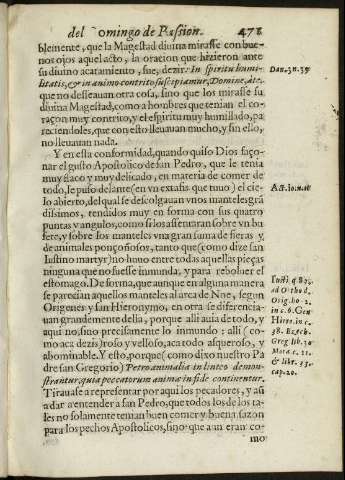 del Domingo de Passion. 471
blemente, que la Magestad diuina mirasse con bue-
nos ojos aquel acto, la oracion que hizieron ante
su diuino acatamiento, fue, dezir: In spiritu humi-
litatis, & in animo contrito suscipiamur, Domine, à te.
que no desseauan otra cosa, sino que los mirasse su
diuina Magestad, como a hombres que tenian el co-
raçon muy contrito, y el espiritu muy humillado, pa
reciendoles, que con esto lleuauan mucho, y sin ello,
no lleuauan nada.
Y en esta conformidad, quando quiso Dios saço-
nar el gusto Apostolico de san Pedro, que le tenia
muy flaco y muy delicado, en materia de comer de
todo, le puso delante (en vn extasis que tuuo) el cie-
lo abierto, del qual se descolgauan vnos manteles grã
dissimos, tendidos muy en forma con sus quatro
puntas y angulos, como si los assentaran sobre vn bu
fete, y sobre los manteles vna gran suma de fieras y
de animales ponçoñosos, tanto que (como dize san
Iustino martyr) no huuo entre todas aquellas pieças
ninguna que no fuesse inmunda, y para reboluer el
estomago. De forma, que aunque en alguna manera
se parecian aquellos manteles al arca de Noe, segun
Origenes y san Hieronymo, en otra se diferencia-
uan grandemente della, porque alli auia de todo, y
aqui no, sino precisamente lo inmundo: alli (co-
mo aca dezis) roso y velloso, aca todo asqueroso, y
abominable. Y esto, porque (como dixo nuestro Pa
dre san Gregorio) Petro animalia in linteo demon-
strantur, quia peccatorum animæ in fide continentur.
Tirauase a representar por aqui los pecadores, y assi
a dar a entender a san Pedro, que todos los de los ta-
les no solamente tenian buen comer y buena sazon
para los pechos Apostolicos, sino que a un eran co-
mo
Dan. 3. n. 39.
Act. 10. n. 11
ad Orthod.
Orig. ho. 2.
in c. 6. Gen
38. Ezech.
Greg lib. 30
& libr. 33.
cap. 20.